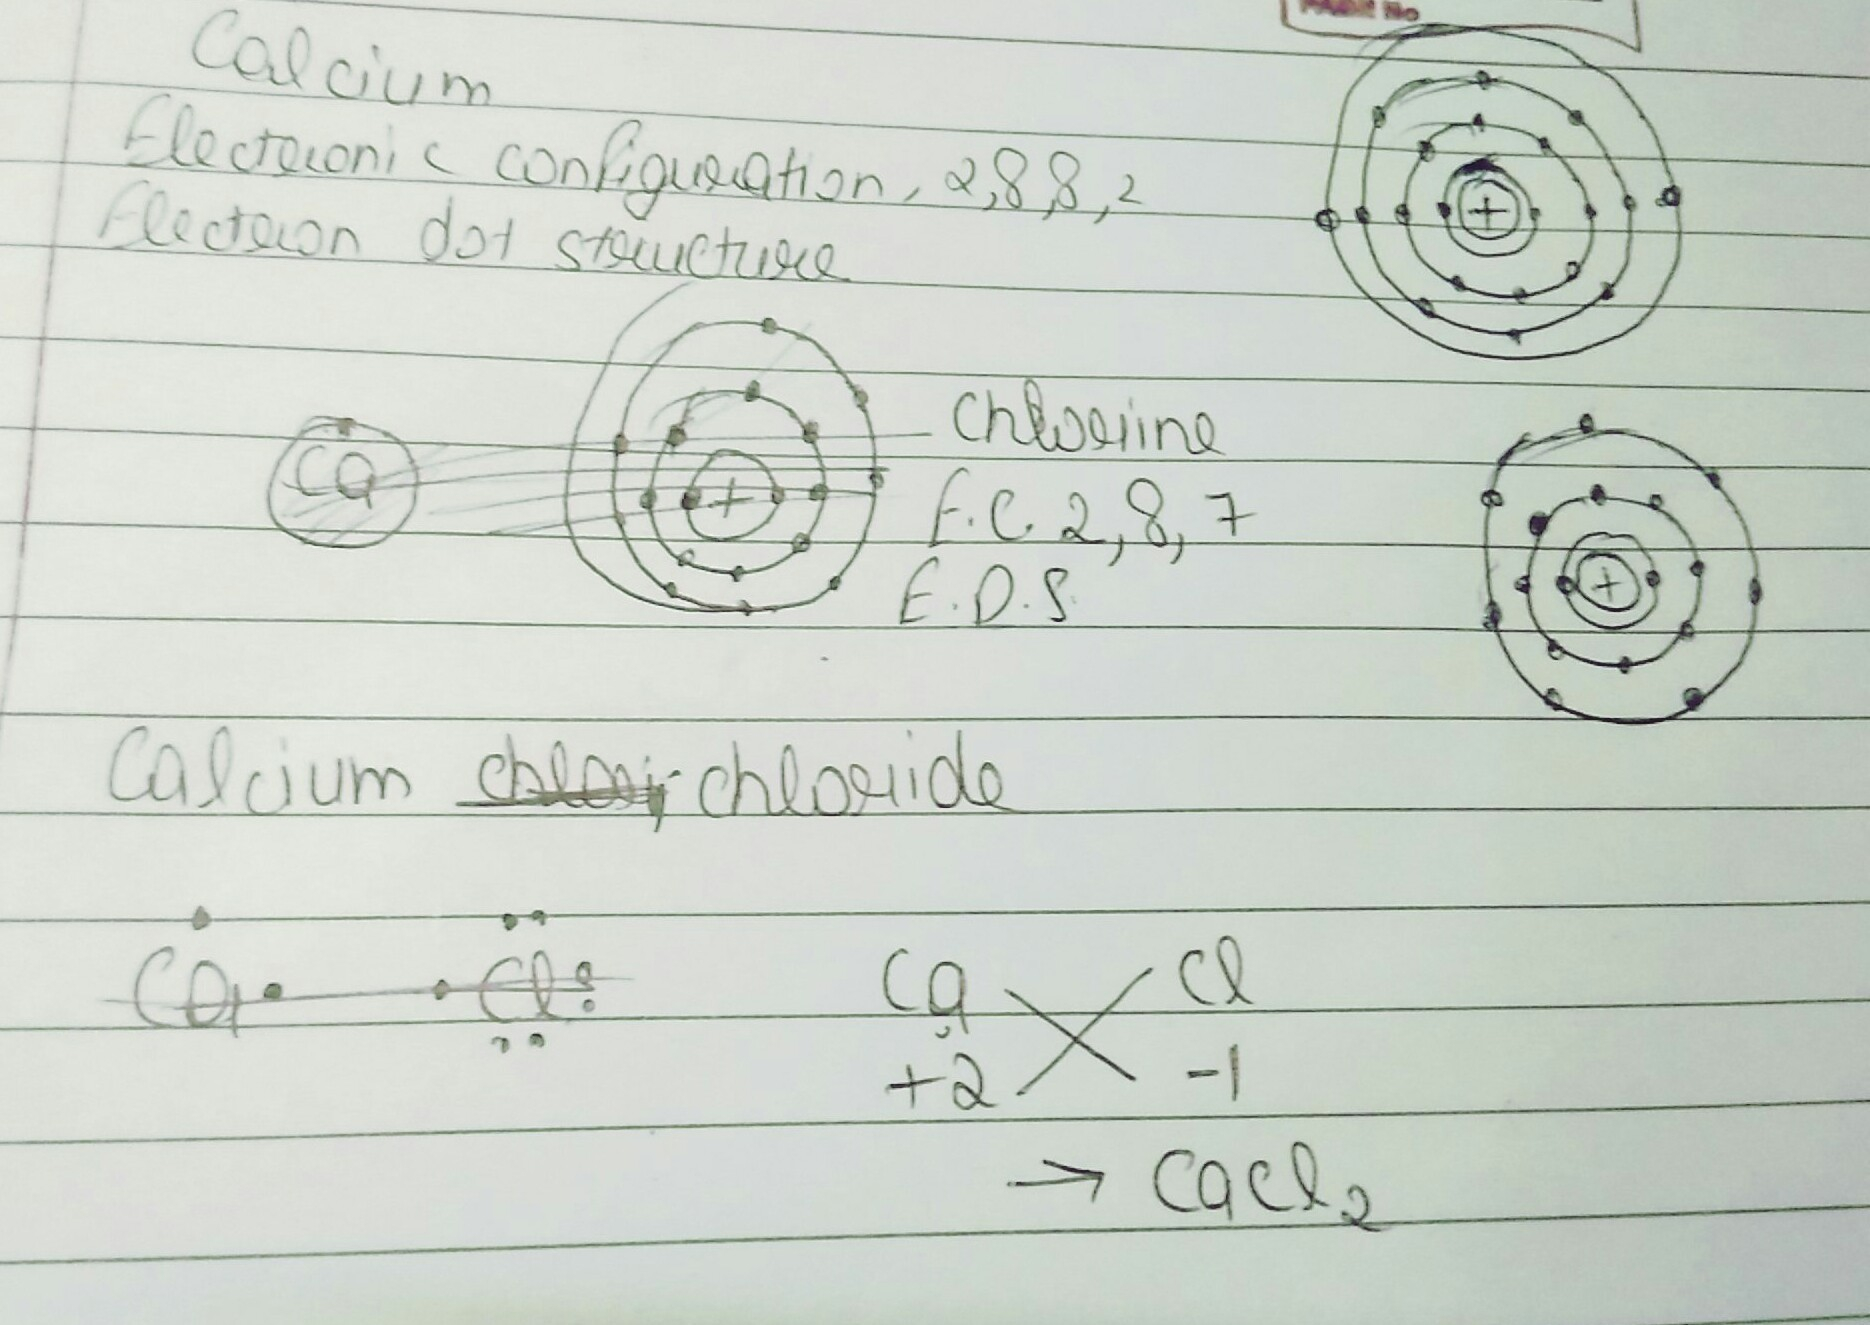 PAGE No
Calcium
Electronic configuration, 2,8,8,2
Electron dot structure
+
Ca
+
Chlorine
E.C. 2,8,7
E.D.S.
+
Calcium chlori chloride
Ca Cl
Ca Cl
+2 -1
→ CaCl2